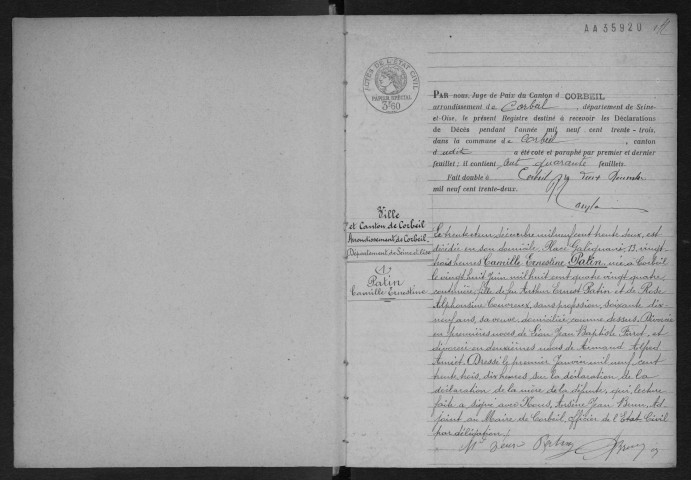 AA35920
ACTES DE L'ÉTAT CIVIL
PAPIER SPÉCIAL
PAR nous, Juge de Paix du Canton d CORBEIL
arrondissement de Corbeil, département de Seine-
et-Oise, le présent Registre destiné à recevoir les Déclarations
de Décès pendant l'année mil neuf cent trente-trois,
dans la commune de Corbeil, canton
d udit a été coté et paraphé par premier et dernier
feuillet; il contient cent quarante feuillets.
Fait double à Corbeil
mil neuf cent trente-deux.
Ville
et Canton de Corbeil
Arrondissement de Corbeil
Département de Seine et Oise
1
Patin
Camille Ernestine
Le trente et un décembre mil neuf cent trente deux, est
décédée en son domicile Place Galignani, 13, vingt
trois heures Camille Ernestine Patin, née à Corbeil
le vingt huit Juin mil huit cent quatre vingt quatre,
couturière, fille de feu Arthur Ernest Patin et de Rose
Alphonsine sans profession, soixante dix
neuf ans, sa veuve domiciliée comme dessus. Divorcée
en premières noces de Léon Jean Baptiste et
divorcée en deuxièmes noces de Armand Alfred
Dressé le premier Janvier mil neuf cent
trente trois, dix heures sur la déclaration de la
déclaration de la mère de la défunte, qui, lecture
faite a signé avec Nous, Arsène Jean Brun, Ad-
joint au Maire de Corbeil, Officier de l'Etat Civil
par délégation.